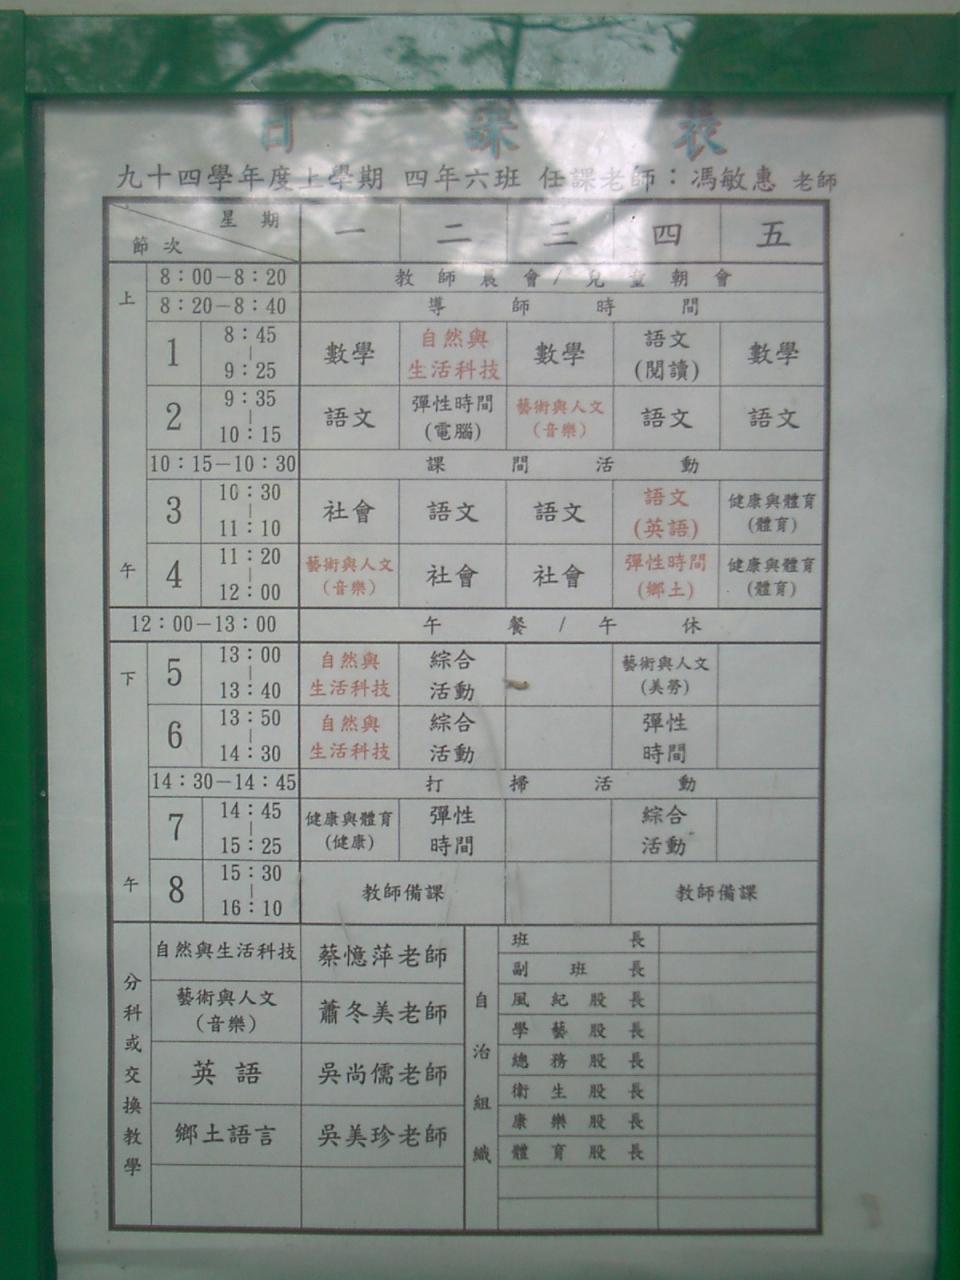 日課表
九十四學年度上學期 四年六班 任課老師：馮敏惠 老師
星期
節次
一 二 三 四 五
上午
8：00－8：20 教師晨會/兒童朝會
8：20－8：40 導師時間
1 8：45－9：25 數學 自然與生活科技 數學 語文(閱讀) 數學
2 9：35－10：15 語文 彈性時間(電腦) 藝術與人文(音樂) 語文 語文
10：15－10：30 課間活動
3 10：30－11：10 社會 語文 語文 語文(英語) 健康與體育(體育)
4 11：20－12：00 藝術與人文(音樂) 社會 社會 彈性時間(鄉土) 健康與體育(體育)
12：00－13：00 午餐/午休
下午
5 13：00－13：40 自然與生活科技 綜合活動 藝術與人文(美勞)
6 13：50－14：30 自然與生活科技 綜合活動 彈性時間
14：30－14：45 打掃活動
7 14：45－15：25 健康與體育(健康) 彈性時間 綜合活動
8 15：30－16：10 教師備課 教師備課
分科或交換教學
自然與生活科技 蔡憶萍老師
藝術與人文(音樂) 蕭冬美老師
英語 吳尚儒老師
鄉土語言 吳美珍老師
自治組織
班長
副班長
風紀股長
學藝股長
總務股長
衛生股長
康樂股長
體育股長